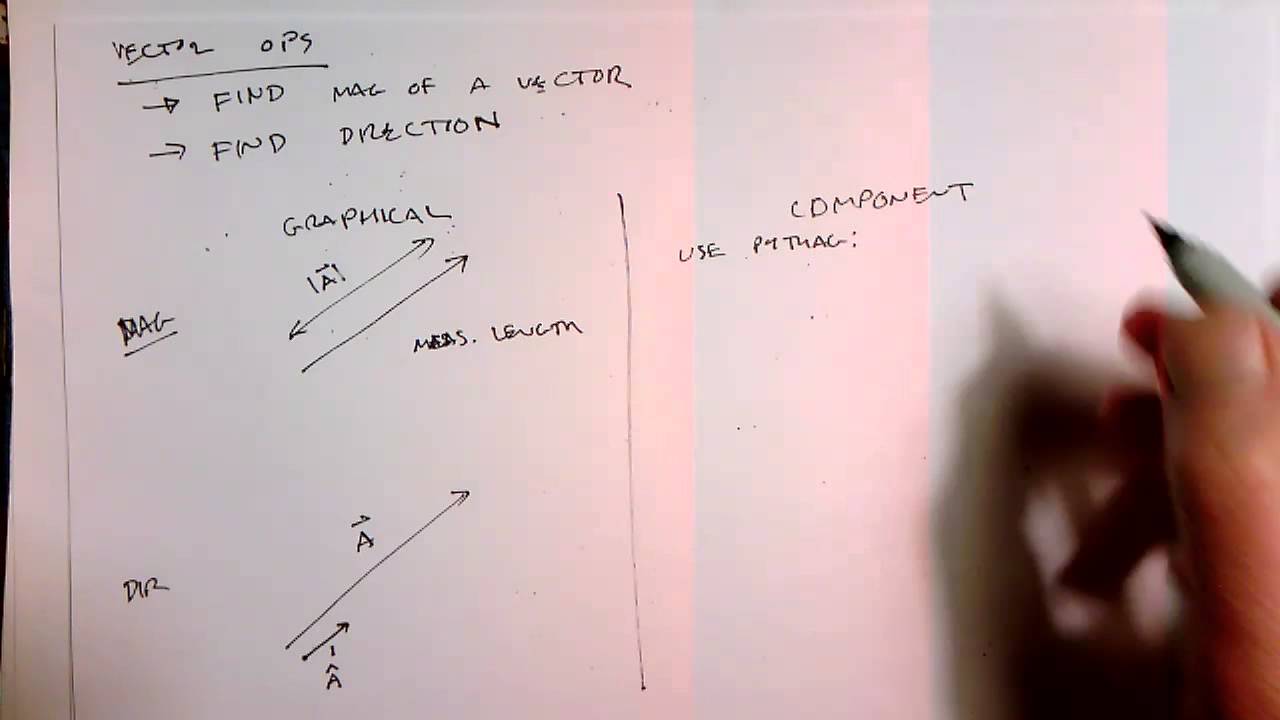 VECTOR OPS
→ FIND MAG OF A VECTOR
→ FIND DIRECTION
GRAPHICAL
COMPONENT
USE PYTHAG:
|A⃗|
MAG
MEAS. LENGTH
A⃗
DIR
1
Â